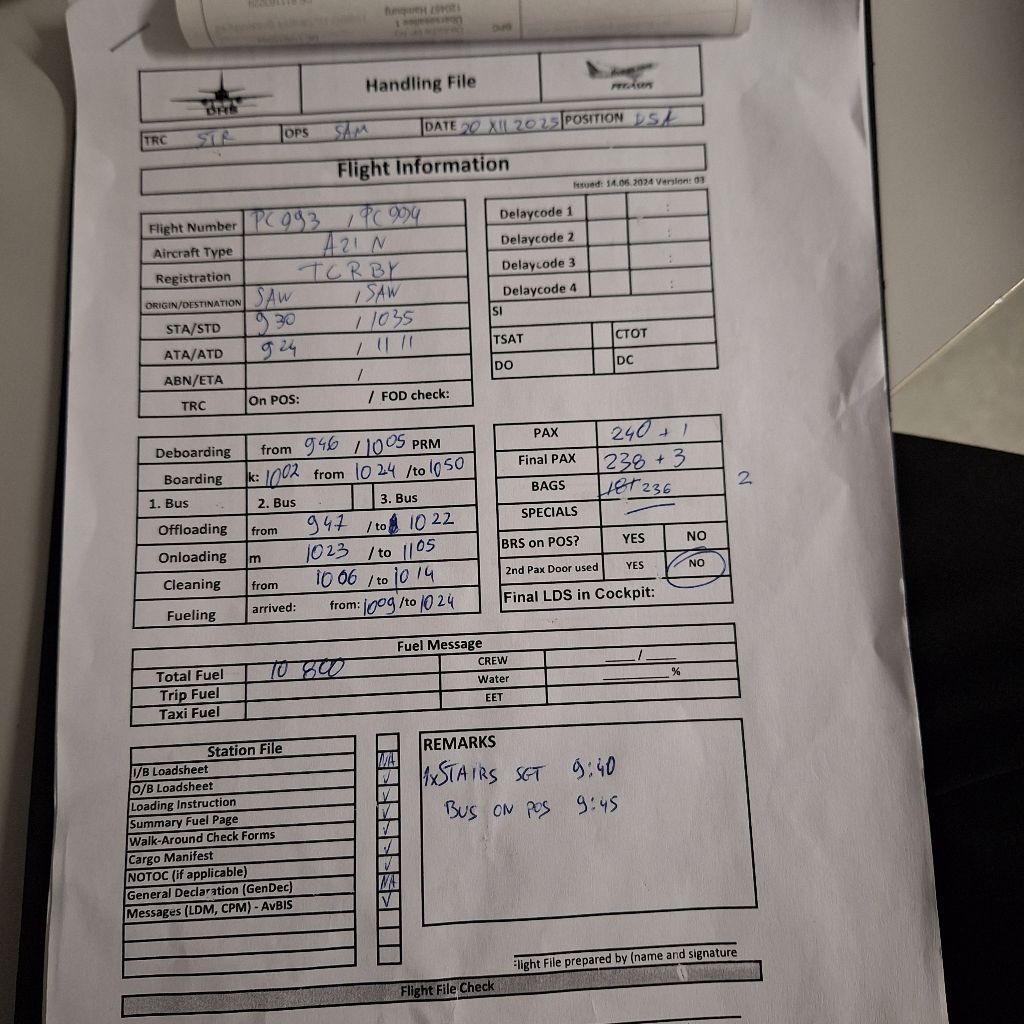 120457 Hamburg
DHS
Handling File
PEGASUS
TRC STR OPS SAM DATE 20 XII 2025 POSITION
Flight Information
Issued: 14.06.2024 Version: 03
Flight Number PC 993 / PC 994
Aircraft Type A21N
Registration TCRBY
ORIGIN/DESTINATION SAW / SAW
STA/STD 930 / 1035
ATA/ATD 924 / 1111
ABN/ETA /
TRC On POS: / FOD check:
Delaycode 1 :
Delaycode 2 :
Delaycode 3 :
Delaycode 4 :
SI
TSAT CTOT
DO DC
Deboarding from 946 / 1005 PRM
Boarding k: 1002 from 1024 /to 1050
1. Bus 2. Bus 3. Bus
Offloading from 947 /to 1022
Onloading m 1023 /to 1105
Cleaning from 1006 /to 1014
Fueling arrived: from: 1009 /to 1024
PAX 240 + 1
Final PAX 238 + 3
BAGS 236 2
SPECIALS
BRS on POS? YES NO
2nd Pax Door used YES NO
Final LDS in Cockpit:
Fuel Message
Total Fuel 10 800 CREW /
Trip Fuel Water %
Taxi Fuel EET
Station File
I/B Loadsheet NA
O/B Loadsheet ✓
Loading Instruction ✓
Summary Fuel Page ✓
Walk-Around Check Forms ✓
Cargo Manifest ✓
NOTOC (if applicable) ✓
General Declaration (GenDec) NA
Messages (LDM, CPM) - AvBIS ✓
REMARKS
1xSTAIRS SET 9:40
BUS ON POS 9:45
Flight File prepared by (name and signature
Flight File Check